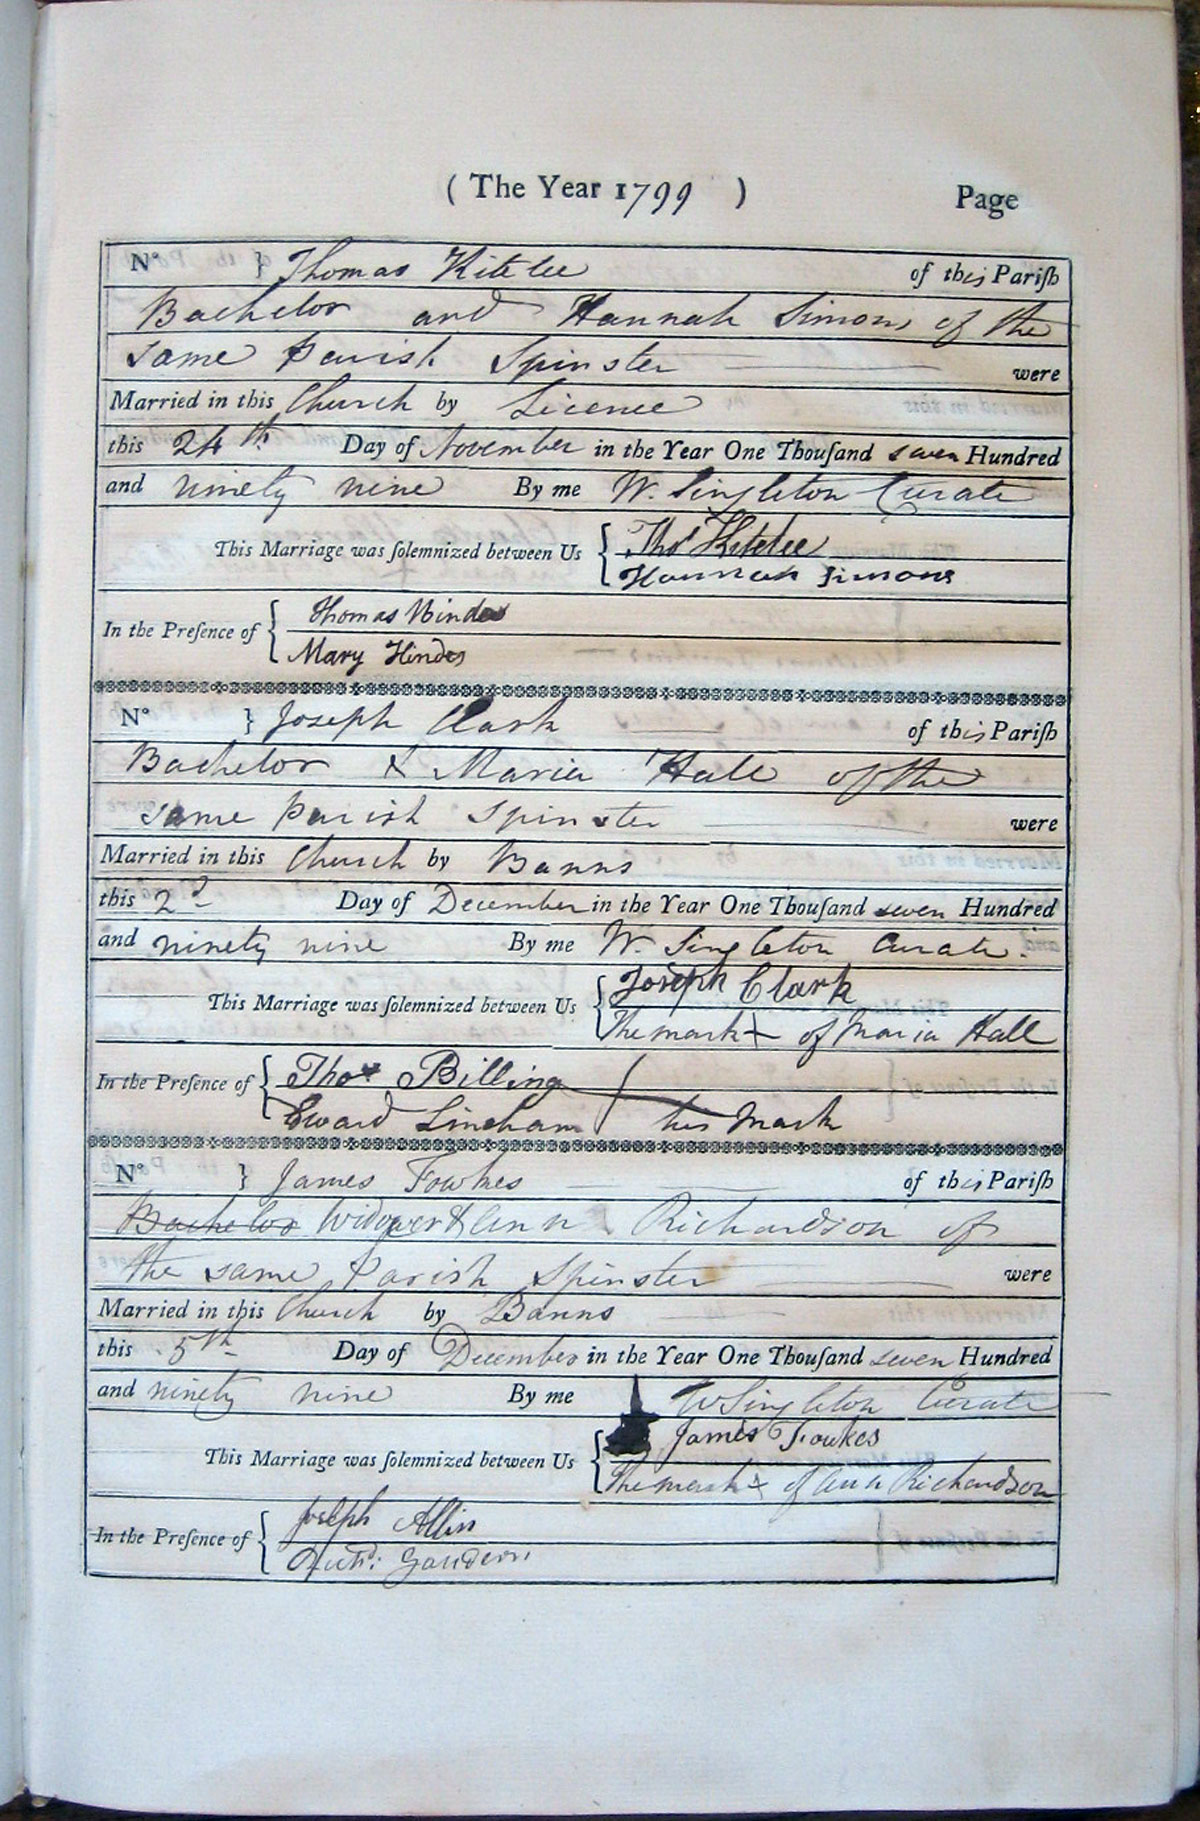 ( The Year 1799 ) Page
N° } Thomas Kitelee of this Pariſh
Bachelor and Hannah Simons of the
same Parish Spinster were
Married in this Church by Licence
this 24th Day of November in the Year One Thouſand seven Hundred
and ninety nine By me W. Singleton Curate
This Marriage was ſolemnized between Us { Thos Kitelee
Hannah Simons
In the Preſence of { Thomas Hindes
Mary Hindes
N° } Joseph Clark of this Pariſh
Bachelor & Maria Hall of the
same Parish Spinster were
Married in this Church by Banns
this 2d Day of December in the Year One Thouſand seven Hundred
and ninety nine By me W. Singleton Curate.
This Marriage was ſolemnized between Us { Joseph Clark
The mark + of Maria Hall
In the Preſence of { Thos Billing
Edward Lineham his Mark
N° } James Fowkes of this Pariſh
Bachelor Widower & Ann Richardson of
the same Parish Spinster were
Married in this Church by Banns
this 5th Day of December in the Year One Thouſand seven Hundred
and ninety nine By me W Singleton Curate
This Marriage was ſolemnized between Us { James Fowkes
The mark + of Ann Richardson
In the Preſence of { Joseph Allin